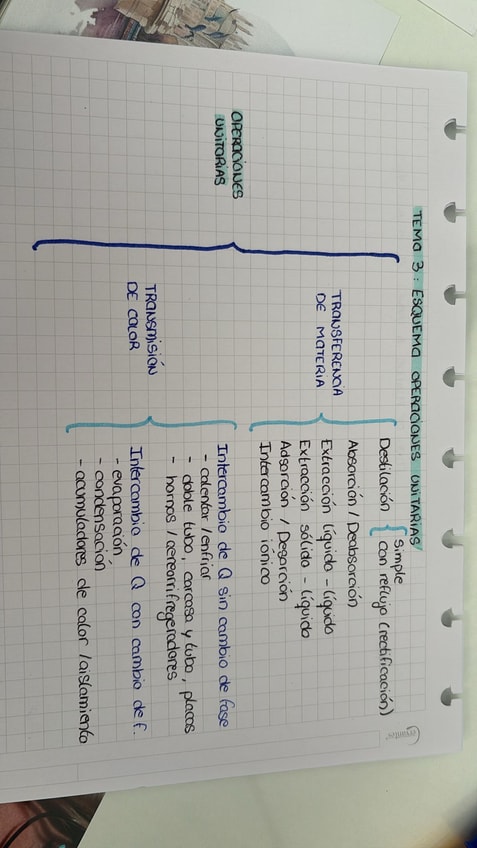 TEMA 3: ESQUEMA OPERACIONES UNITARIAS
OPERACIONES
UNITARIAS
TRANSFERENCIA
DE MATERIA
Destilación
Simple
con reflujo (rectificación)
Absorción / Desabsorción
Extracción líquido - líquido
Extracción sólido - líquido
Adsorción / Desorción
Intercambio iónico
TRANSMISIÓN
DE CALOR
Intercambio de Q sin cambio de fase
- calentar / enfriar
- doble tubo, carcasa y tubo, placas
- hornos / aerorrifregeradores
Intercambio de Q con cambio de f.
- evaporación
- condensación
- acumuladores de calor / aislamiento